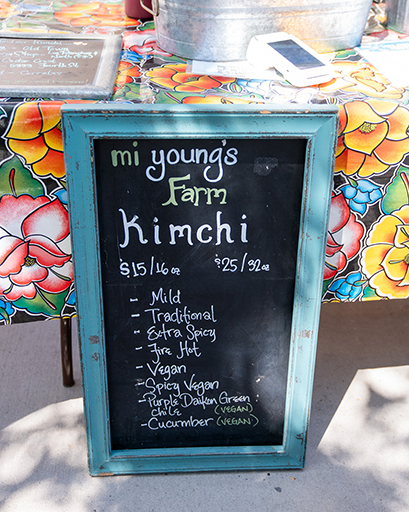 mi young's
Farm
Kimchi
$15/16oz $25/32oz
- Mild
- Traditional
- Extra Spicy
- Fire Hot
- Vegan
- Spicy Vegan
- Purple Daikon Green
Chile (VEGAN)
- Cucumber (VEGAN)